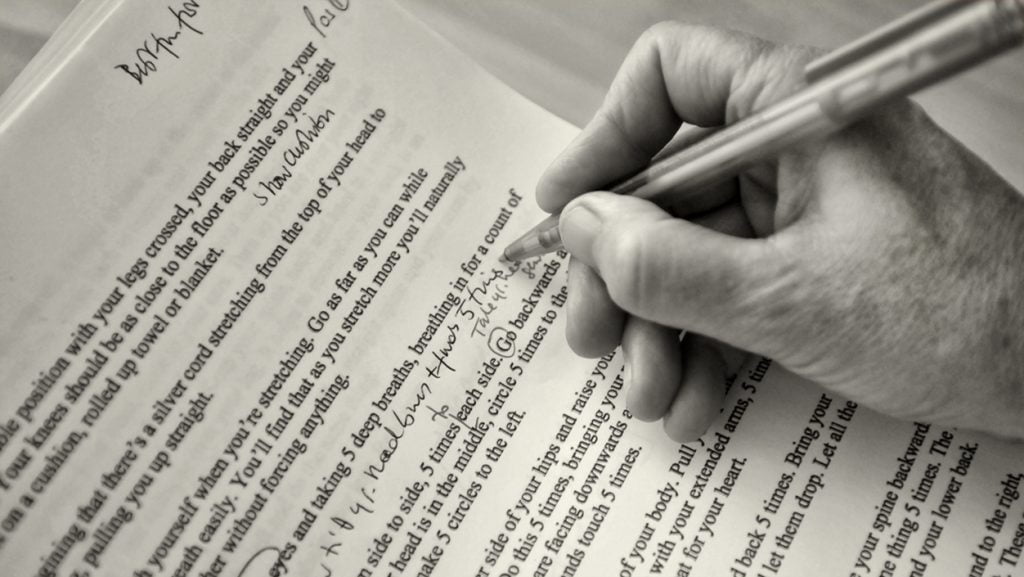 ble position with your legs crossed, your back straight and your
Your knees should be as close to the floor as possible so you might
show cushion
on a cushion, rolled up towel or blanket.
gining that there's a silver cord stretching from the top of your head to
pulling you up straight.
h yourself when you're stretching. Go as far as you can while
eath easily. You'll find that as you stretch more you'll naturally
her without forcing anything.
eyes and taking 5 deep breaths, breathing in for a count of
5 times
to
n side to side, 5 times each side. Go backwards
head is in the middle, circle 5 times to the
ake 5 circles to the left.
er side of your hips and raise you
Do this 5 times, bringing your
are facing downwards a
nds touch 5 times.
of your body. Pull
with your extended arms, 5 tim
at for your heart.
d back 5 times. Bring your
let them drop. Let all the
your spine backward
e thing 5 times. The
nd your lower back.
nd to the right,
times. These